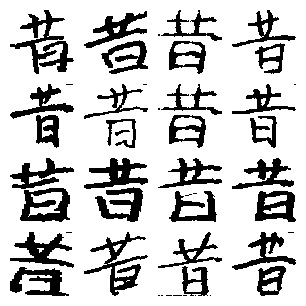 昔昔昔昔
昔昔昔昔
昔昔昔昔
昔昔昔昔